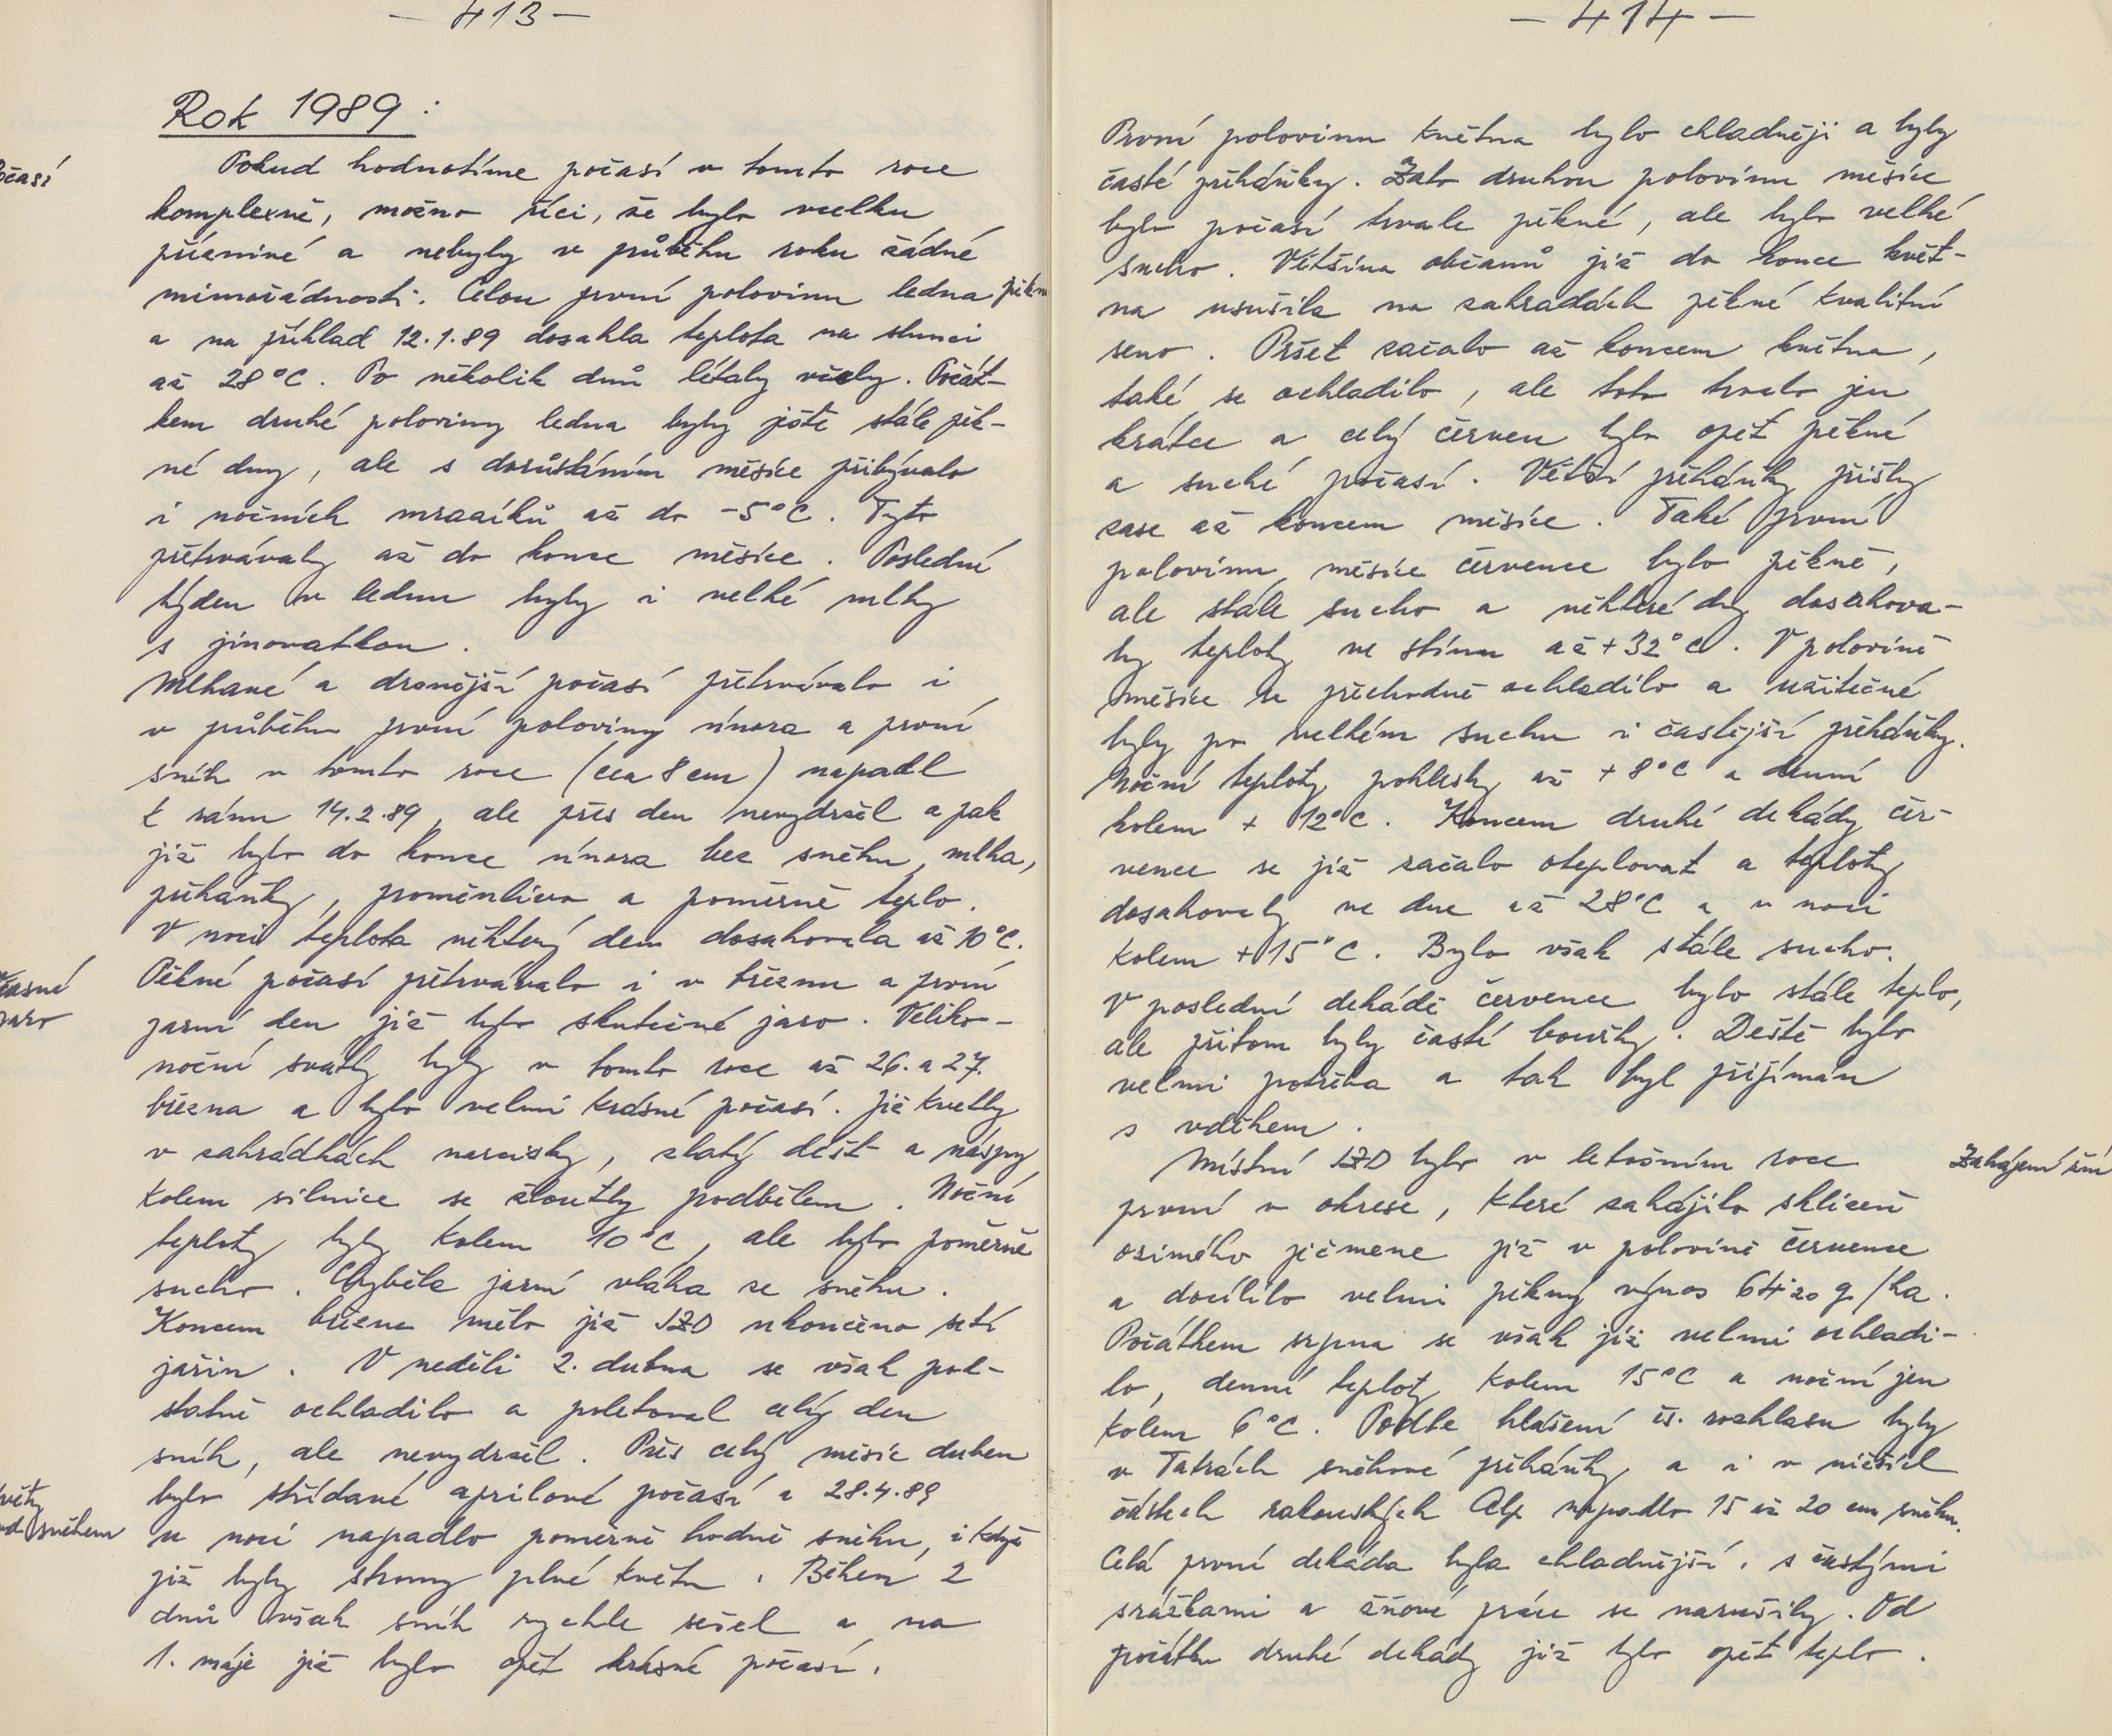 — 413 —
Rok 1989 :
Pokud hodnotíme počasí v tomto roce
komplexně, možno říci, že bylo vcelku
příznivé a nebyly v průběhu roku žádné
mimořádnosti. Celou první polovinu ledna pěkn
a na příklad 12.1.89 dosáhla teplota na slunci
až 28°C. Po několik dnů létaly včely. Počát-
kem druhé poloviny ledna byly ještě stále pěk-
né dny, ale s dorůstáním měsíce přibývalo
i nočních mrazíků až do -5°C. Tyto
přetrvávaly až do konce měsíce. Poslední
týden v lednu byly i velké mlhy
s jinovatkou.
Mlhavé a drsnější počasí přetrvávalo i
v průběhu první poloviny února a první
sníh v tomto roce (cca 8 cm) napadl
k ránu 14.2.89, ale přes den nevydržel a pak
již bylo do konce února bez sněhu, mlha,
přeháňky, proměnlivo a poměrně teplo.
V noci teplota některý den dosahovala až 10°C.
Pěkné počasí přetrvávalo i v březnu a první
jarní den již bylo skutečné jaro. Veliko-
noční svátky byly v tomto roce až 26. a 27.
března a bylo velmi krásné počasí. Již kvetly
v zahrádkách narcisky, zlatý déšt a náspy
kolem silnice se žloutly podbělem. Noční
teploty byly kolem 10°C, ale bylo poměrně
sucho. Chyběla jarní vláha ze sněhu.
Koncem března mělo již JZD ukončeno setí
jařin. V neděli 2. dubna se však pod-
statně ochladilo a poletoval celý den
sníh, ale nevydržel. Přes celý měsíc duben
bylo střídavé aprilové počasí a 28.4.89
v noci napadlo poměrně hodně sněhu, i když
již byly stromy plné květu. Během 2
dnů však sníh rychle sešel a na
1. máje již bylo opět krásné počasí.
očasí
časné
jaro
květy
od sněhem
— 414 —
První polovinu května bylo chladněji a byly
časté přeháňky. Zato druhou polovinu měsíce
bylo počasí trvale pěkné, ale bylo velké
sucho. Většina občanů již do konce květ-
na usušila na zahradách pěkné kvalitní
seno. Pršet začalo až koncem května,
také se ochladilo, ale toto trvalo jen
krátce a celý červen bylo opět pěkné
a suché počasí. Větší přeháňky přišly
zase až koncem měsíce. Také první
polovinu měsíce července bylo pěkně,
ale stále sucho a některé dny dosahova-
ly teploty ve stínu až +32°C. V polovině
měsíce se přechodně ochladilo a užitečné
byly po velkém suchu i častější přeháňky.
Noční teploty poklesly až +8°C a denní
kolem + 12°C. Koncem druhé dekády čer-
vence se již začalo oteplovat a teploty
dosahovaly ve dne až 28°C a v noci
kolem +15°C. Bylo však stále sucho.
V poslední dekádě července bylo stále teplo,
ale přitom byly časté bouřky. Deště bylo
velmi potřeba a tak byl přijímán
s vděkem.
Místní JZD bylo v letošním roce
první v okrese, které zahájilo sklizeň
ozimého ječmene již v polovině července
a docílilo velmi pěkný výnos 64.20 q/ha.
Počátkem srpna se však již velmi ochladi-
lo, denní teploty kolem 15°C a noční jen
kolem 6°C. Podle hlášení čs. rozhlasu byly
v Tatrách sněhové přeháňky a i v nižších
částech rakouských Alp napadlo 15 až 20 cm sněhu.
Celá první dekáda byla chladnější, s častými
srážkami a žňové práce se narušily. Od
počátku druhé dekády již bylo opět teplo.
Zahájení žní